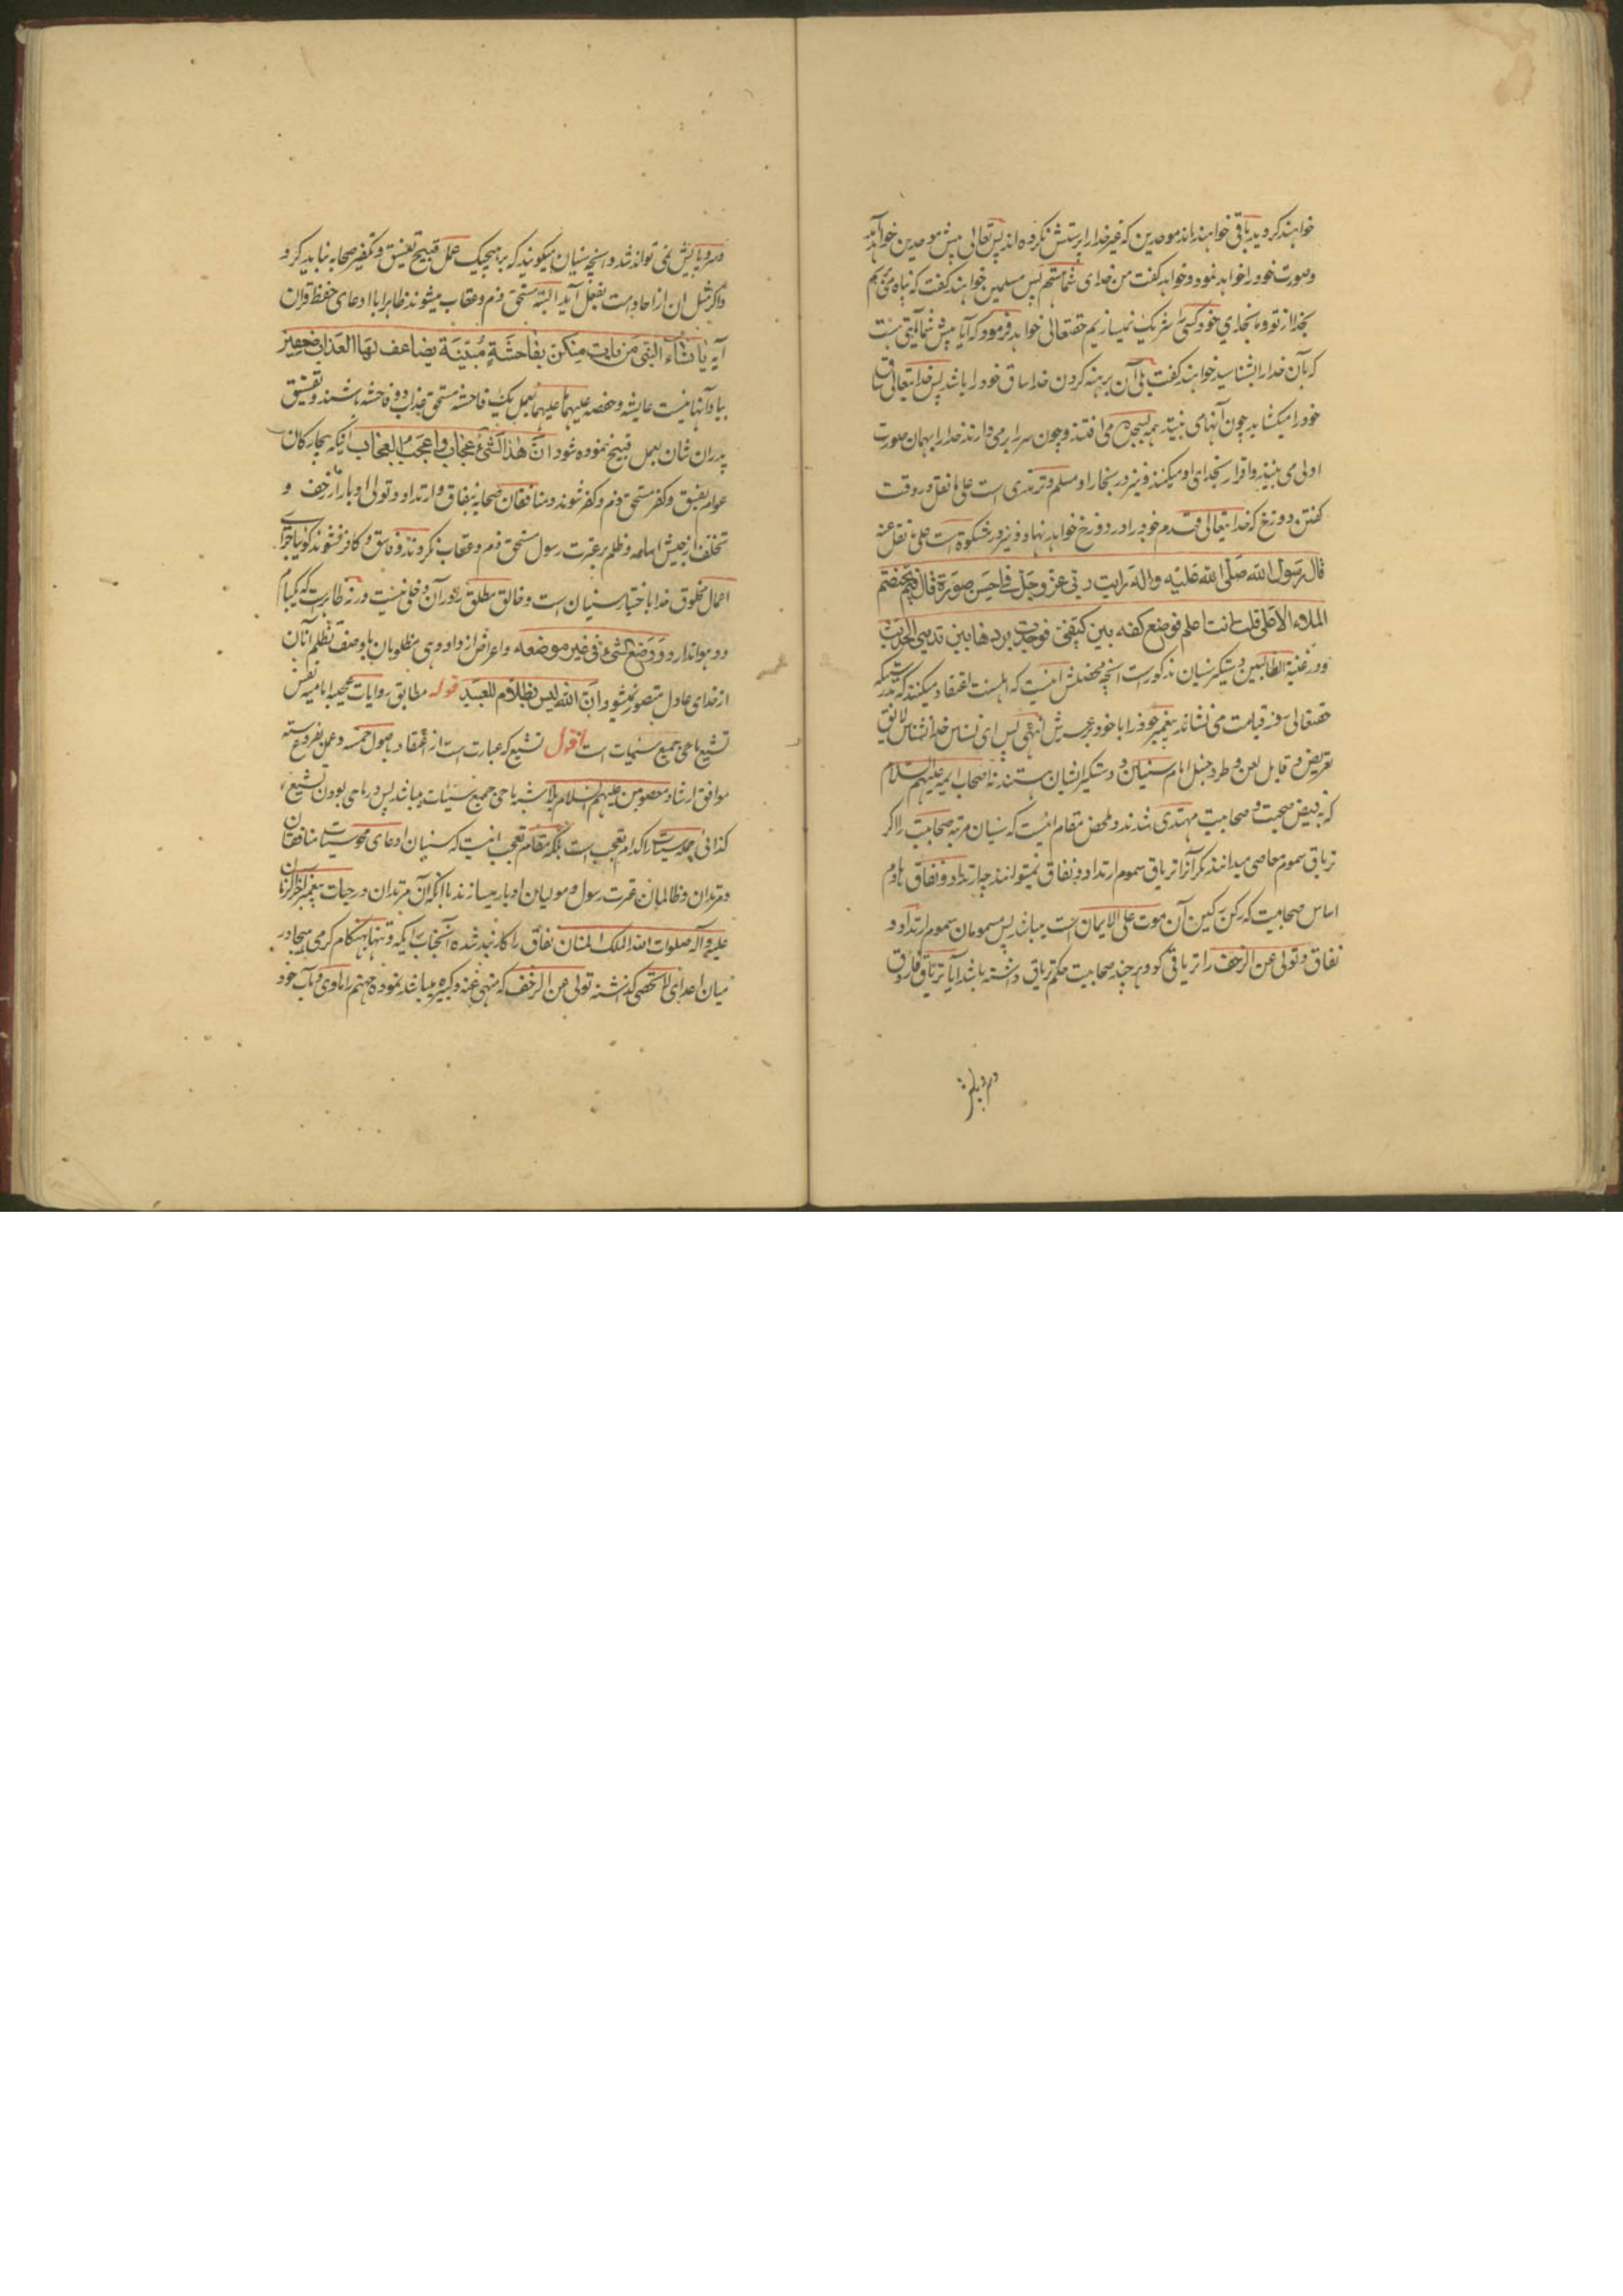 خواهند کردید باقی خواهند ماند موحدین که غیر خدا را پرستش نکرده اند پس تعالی پیش موحدین خواهد آمد
و صورت خود را خواهد نمود و خواهد گفت من خدای شما هستم پس مسلمین خواهند گفت که پناه می بریم
بخدا از تو و ما بخدای خود کسی را شریک نمیسازیم حقتعالی خواهد فرمود که آیا پیش شما آیتی هست
که بآن خدا را بشناسید خواهند گفت بلی آن برهنه کردن خدا ساق خود را باشد پس خدا تعالی ساق
خود را میکشاید چون آنها می بینند همه بسجده می افتند و چون سر را بر می دارند خدا را بهمان صورت
اولی می بینند و اقرار بخدائی او میکنند و نیز در بخاری و مسلم و ترمذی است علی ما نقل در وقت
گفتن دوزخ که خدا یتعالی قدم خود را در دوزخ خواهد نهاد و نیز در مشکوة است علی ما نقل عنه
قال رسول الله صلی الله علیه واله رایت ربی عز وجل فی احسن صورة قال فیم یختصم
الملاء الاعلی قلت انت اعلم فوضع کفه بین کتفی فوجدت بردها بین ثدیی الحدیث
و در غنیة الطالبین دستگیر سنیان مذکور است آنچه محصلش اینست که اهلسنت اعتقاد میکنند که بدرستیکه
حقتعالی روز قیامت می نشاند پیغمبر خود را با خود بر عرش انتهی پس ای نسناس خدا نشناس لایق
تعریض و قابل لعن و طرد حنبل امام سنیان و دستگیر ایشان هستند نه اصحاب ایمه علیهم السلام
که بفیض صحبت و صحابیت مهتدی شدند و ملخص مقام اینست که سنیان مرتبه صحابیت را اگر
تریاق سموم معاصی میدانند مگر آنرا تریاق سموم ارتداد و نفاق نمیتوانند چه ارتداد و نفاق هادم
اساس صحابیت که رکن رکین آن موت علی الایمان است میباشد پس مسمومان سموم ارتداد و
نفاق و تولی عن الزحف را تریاقی کو و هر چند صحابیت حکم تریاق داشته باشد آیا تریاق فاروق
و سرو پایش نمی تواند شد و آنچه سنیان میگویند که بر هیچیک عمل قبیح تفسیق و تکفیر صحابه نباید کرد
و اگر مثل آن از احاد امت بفعل آید البته مستحق ذم و عقاب میشوند ظاهرا با ادعای حفظ قران
آیه یا نساء النبی من یات منکن بفاحشة مبینة یضاعف لها العذاب ضعفین
بیاد آنها نیست عایشه و حفصه علیهما ما علیهما بعمل یک فاحشه مستحق عذاب دو فاحشه باشند و تفسیق
پدران شان بعمل قبیح نموده شود ان هذا لشیء عجاب و اعجب العجاب اینکه بیچارکان
عوام بفسق و کفر مستحق ذم و کفر شوند و منافقان صحابه بنفاق و ارتداد و تولی ادبار از زحف و
تخلف از جیش اسامه و ظلم بر عترت رسول مستحق ذم و عقاب نگردند و فاسق و کافر نشوند گویا جزای
اعمال مخلوق خدا باختیار سنیان است و خالق مطلق را در آن دخلی نیست ورنه ظاهر است که یکبام
دو هوا ندارد و وضع الشیء فی غیر موضعه و اعراض از دادوهی مظلومان با وصف تظلم آنان
از خدای عادل متصور نمیشود و ان الله لیس بظلام للعبید قوله مطابق روایات صحیحه امامیه نفس
تشیع ماحی جمیع سیئات است اقول تشیع که عبارت است از اعتقاد باصول خمسه و عمل بفروع سته
موافق ارشاد معصومین علیهم السلام بلاشبه ماحی جمیع سیئات میباشد پس در ماحی بودن تشیع
کذائی جمله سیئات را کدام تعجب است بلکه مقام تعجب اینست که سنیان ادعای محو سیئات منافقان
و مرتدان و ظالمان عترت رسول و مولیان ادبار میسازند با آنکه آن مرتدان در حیات پیغمبر آخر الزمان
علیه و آله صلوات الله الملک المنان نفاق را کار بند شده آنجناب را یکه و تنها بهنگام گرمی هیجا در
میان اعدای لاتحصی گذاشته تولی عن الزحف که منهی عنه و کبیره میباشد نموده جهنم را ماوی و مآب خود